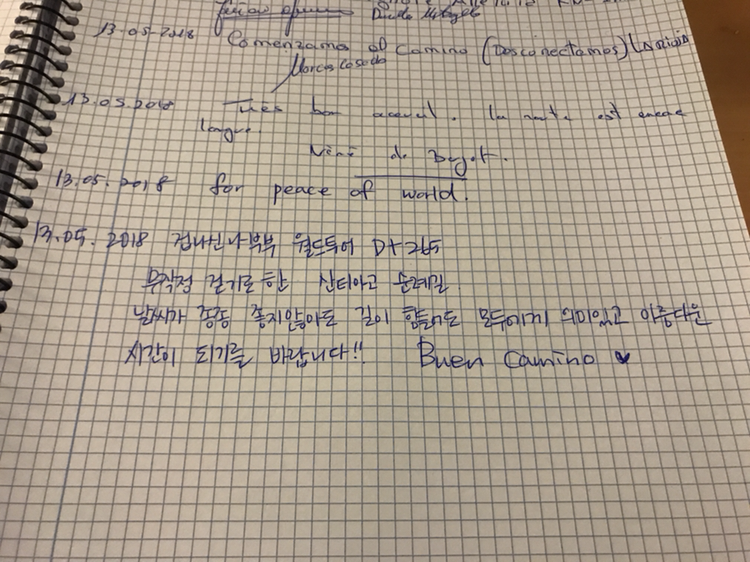 13.05.2018 Comenzamos el Camino (Desconectamos)
Marcos Losada
13.05.2018 Très bon accueil. La route est encore
longue.
Néné de
13.05.2018 for peace of world.
13.05.2018 겁나신나부부 월드투어 D+265
무작정 걷기로한 산티아고 순례길
날씨가 종종 좋지않아도 길이 힘들어도 모두에게 의미있고 아름다운
시간이 되기를 바랍니다!! Buen Camino ♥